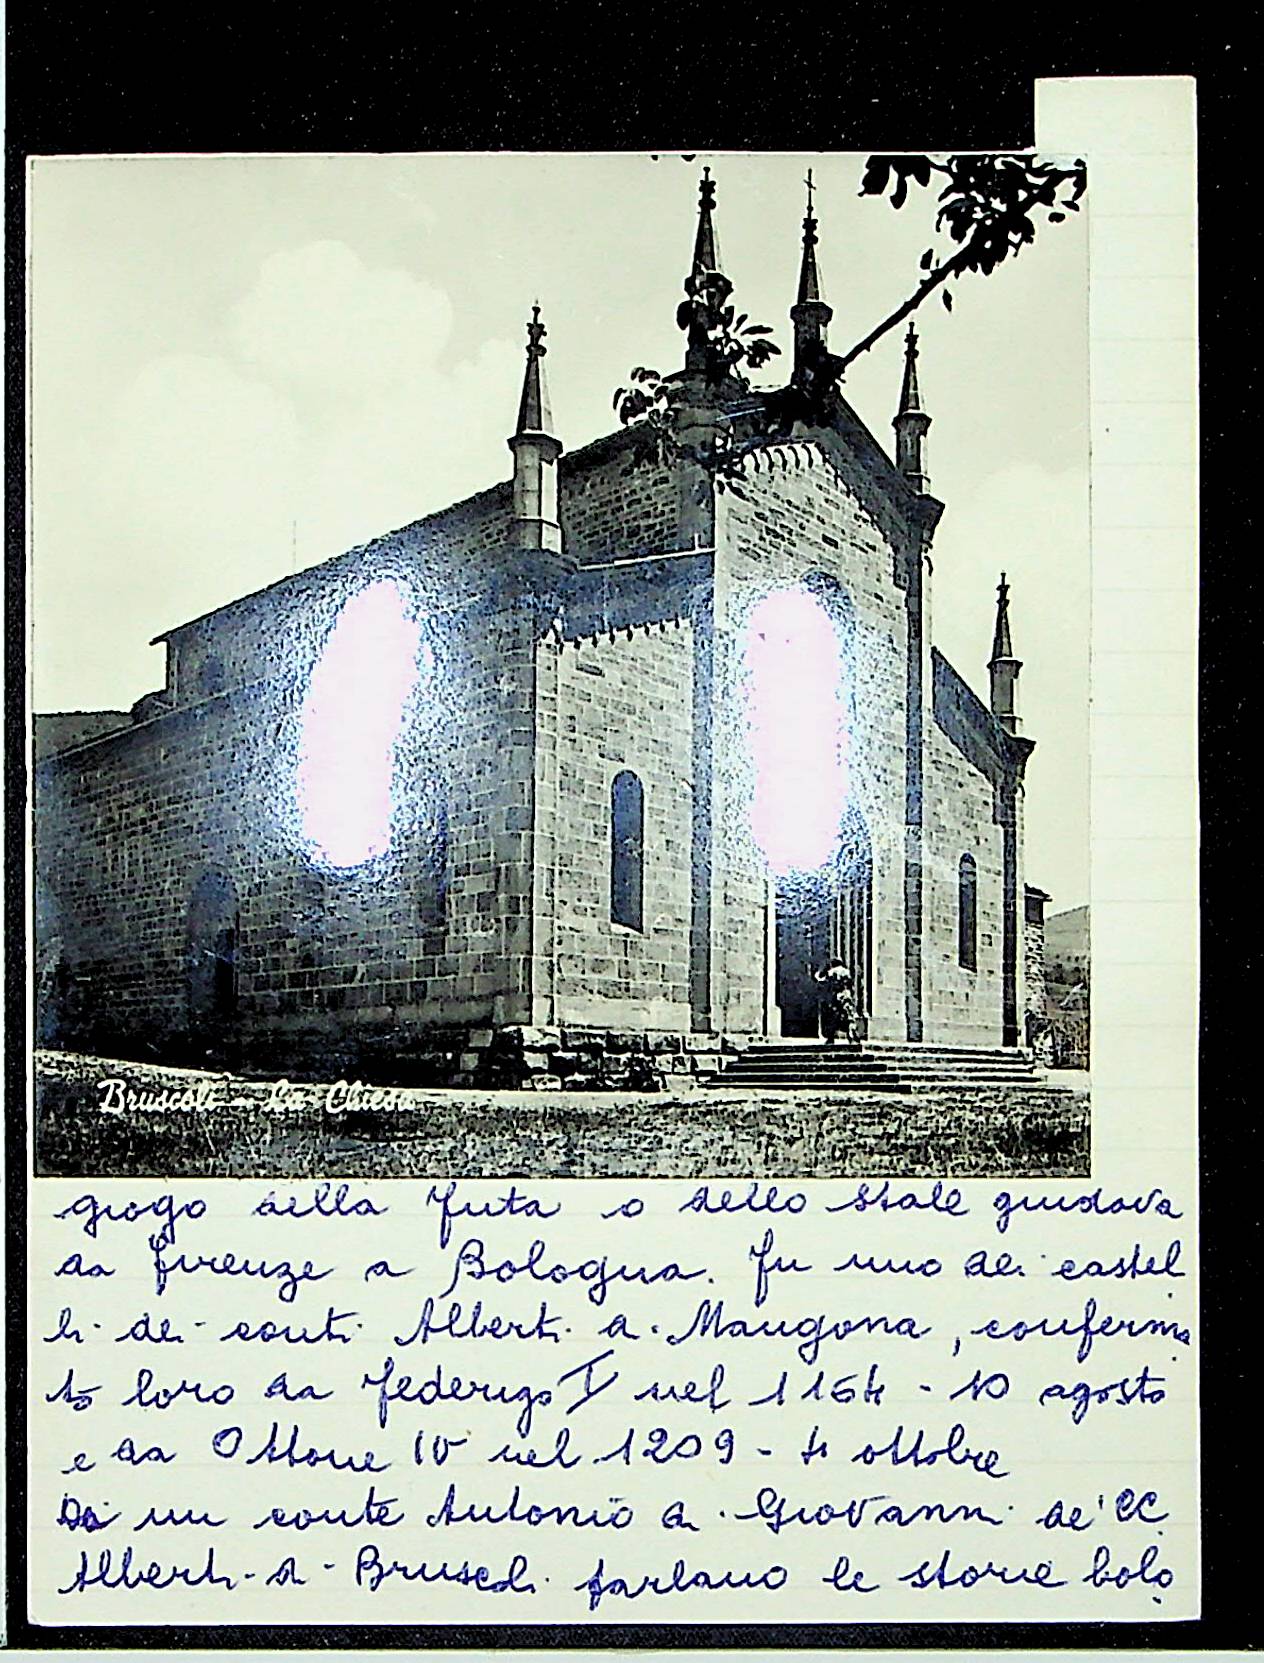 Bruscoli - La Chiesa
giogo della Futa o dello Stale guidava
da Firenze a Bologna. Fu uno dei castel
li dei conti Alberti di Mangona, conferma
to loro da Federigo I nel 1164 - 10 agosto
e da Ottone IV nel 1209 - 4 ottobre
Di un conte Antonio di Giovanni de' CC.
Alberti di Bruscoli parlano le storie bolo